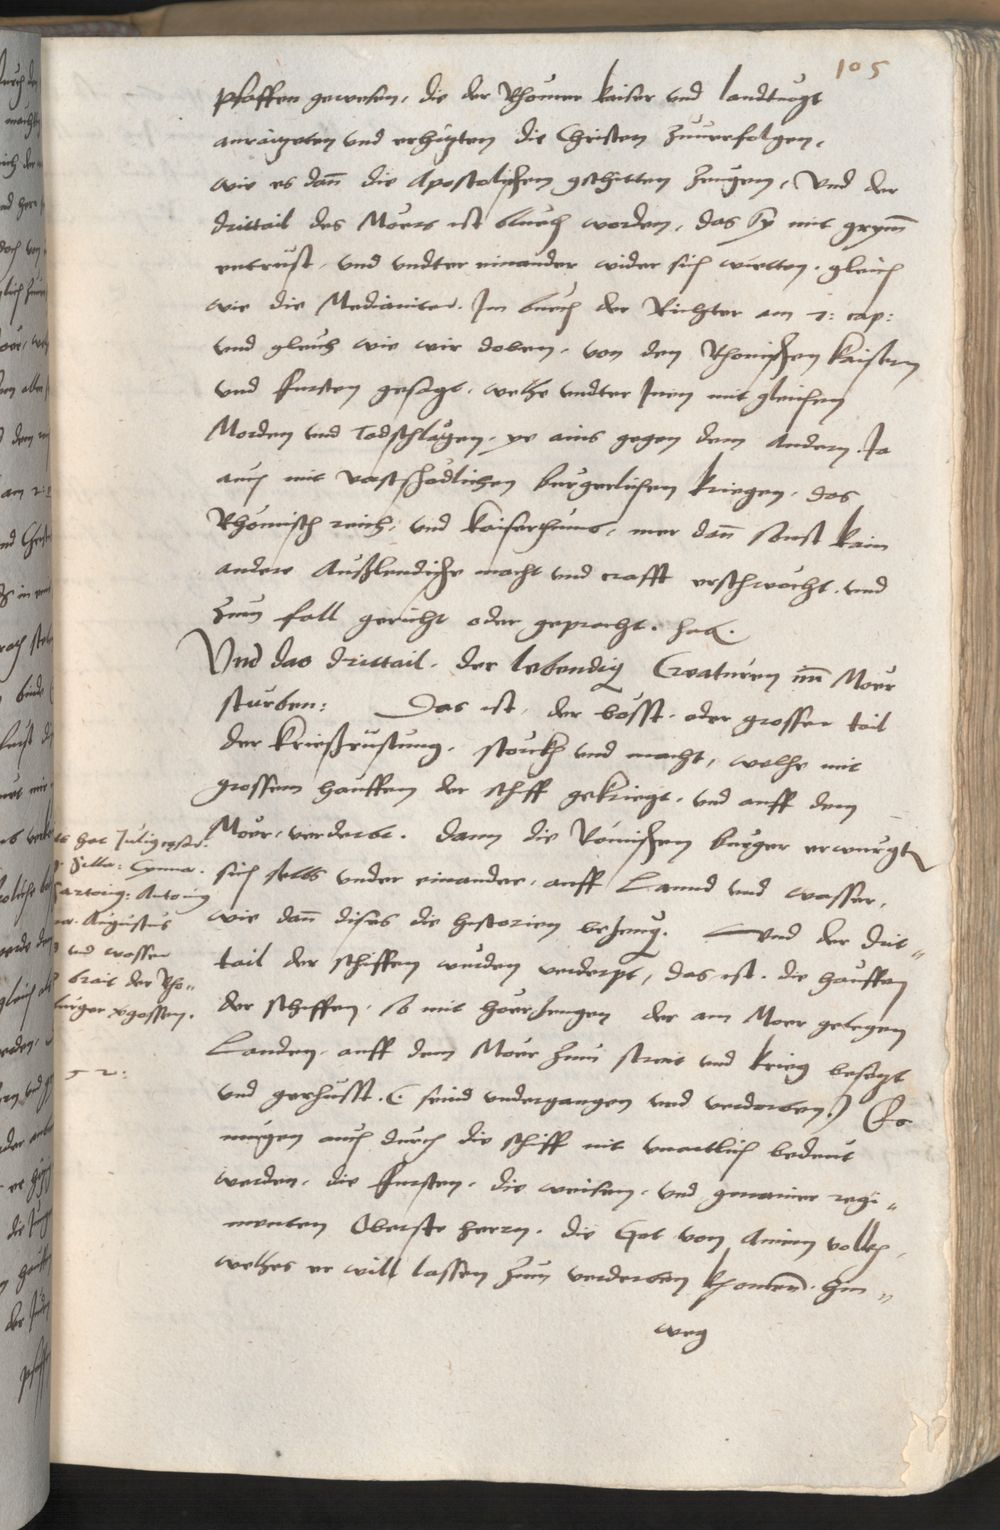 105
Pfaffen gewesen, die der Rhömer kaiser und landtvögt
anraitzeten und erhitzten die Christen zuverfolgen,
wie es dann die Apostolischen gschichten zeugen, Und der
drittail des Möers ist bluet worden, das sy mit grymm
entrüst, und undter einander wider sich wüetten, gleich
wie die Medianiter. Im buech der Richter am 7: cap:
und gleich wie wir doben, von den Rhomischen kaisern
und fursten gesagt, welhe undter Inen mit gleichen
Morden und Todschlägen, ye ains gegen dem andern, Ja
auch mit vastschädlichen burgerlichen kriegen, das
Rhömisch reich, und kaiserthumb, mer dann sonst kain
andere Außlendische macht und crafft erschwöcht, und
zum fall gericht oder gepracht, hab.
Und das drittail, der lebendig Creaturen im Moer
sturben: Das ist, der bösst, oder grosser tail
der kriegsrüstung, störckh und macht, welhe mit
grossem hauffen der schiff gekriegt, und auff dem
Moer, verderbt. dann die Römischen burger erwurgten
sich selbs under einander, auff Lannd und wasser,
wie dann dises die historien bezeug. Und der drit-
tail der schiffen wurden verderpt, das ist, die hauffen
der schiffen, so mit hoerzeugen der am Moer gelegen
Landen, auff dem Moer zum streit und krieg besetzt
und gerhüsst. (: seind undergangen und verdorben.) Es
mugen auch durch die schiff nit unartlich bedeut
werden, die fursten, die weisen, und gemainer regi-
menten Oberste herrn, die Got von Ainem volkh,
welhes er will lassen zum verderben khomen, hin-
weg
hat Julig
Silla: Cynna.
Antonig
Augustus
und wasser
brait der Rho-
burger vgossen.